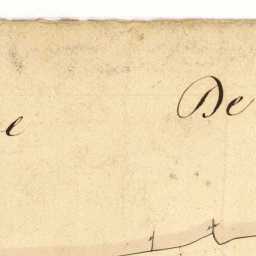 e De